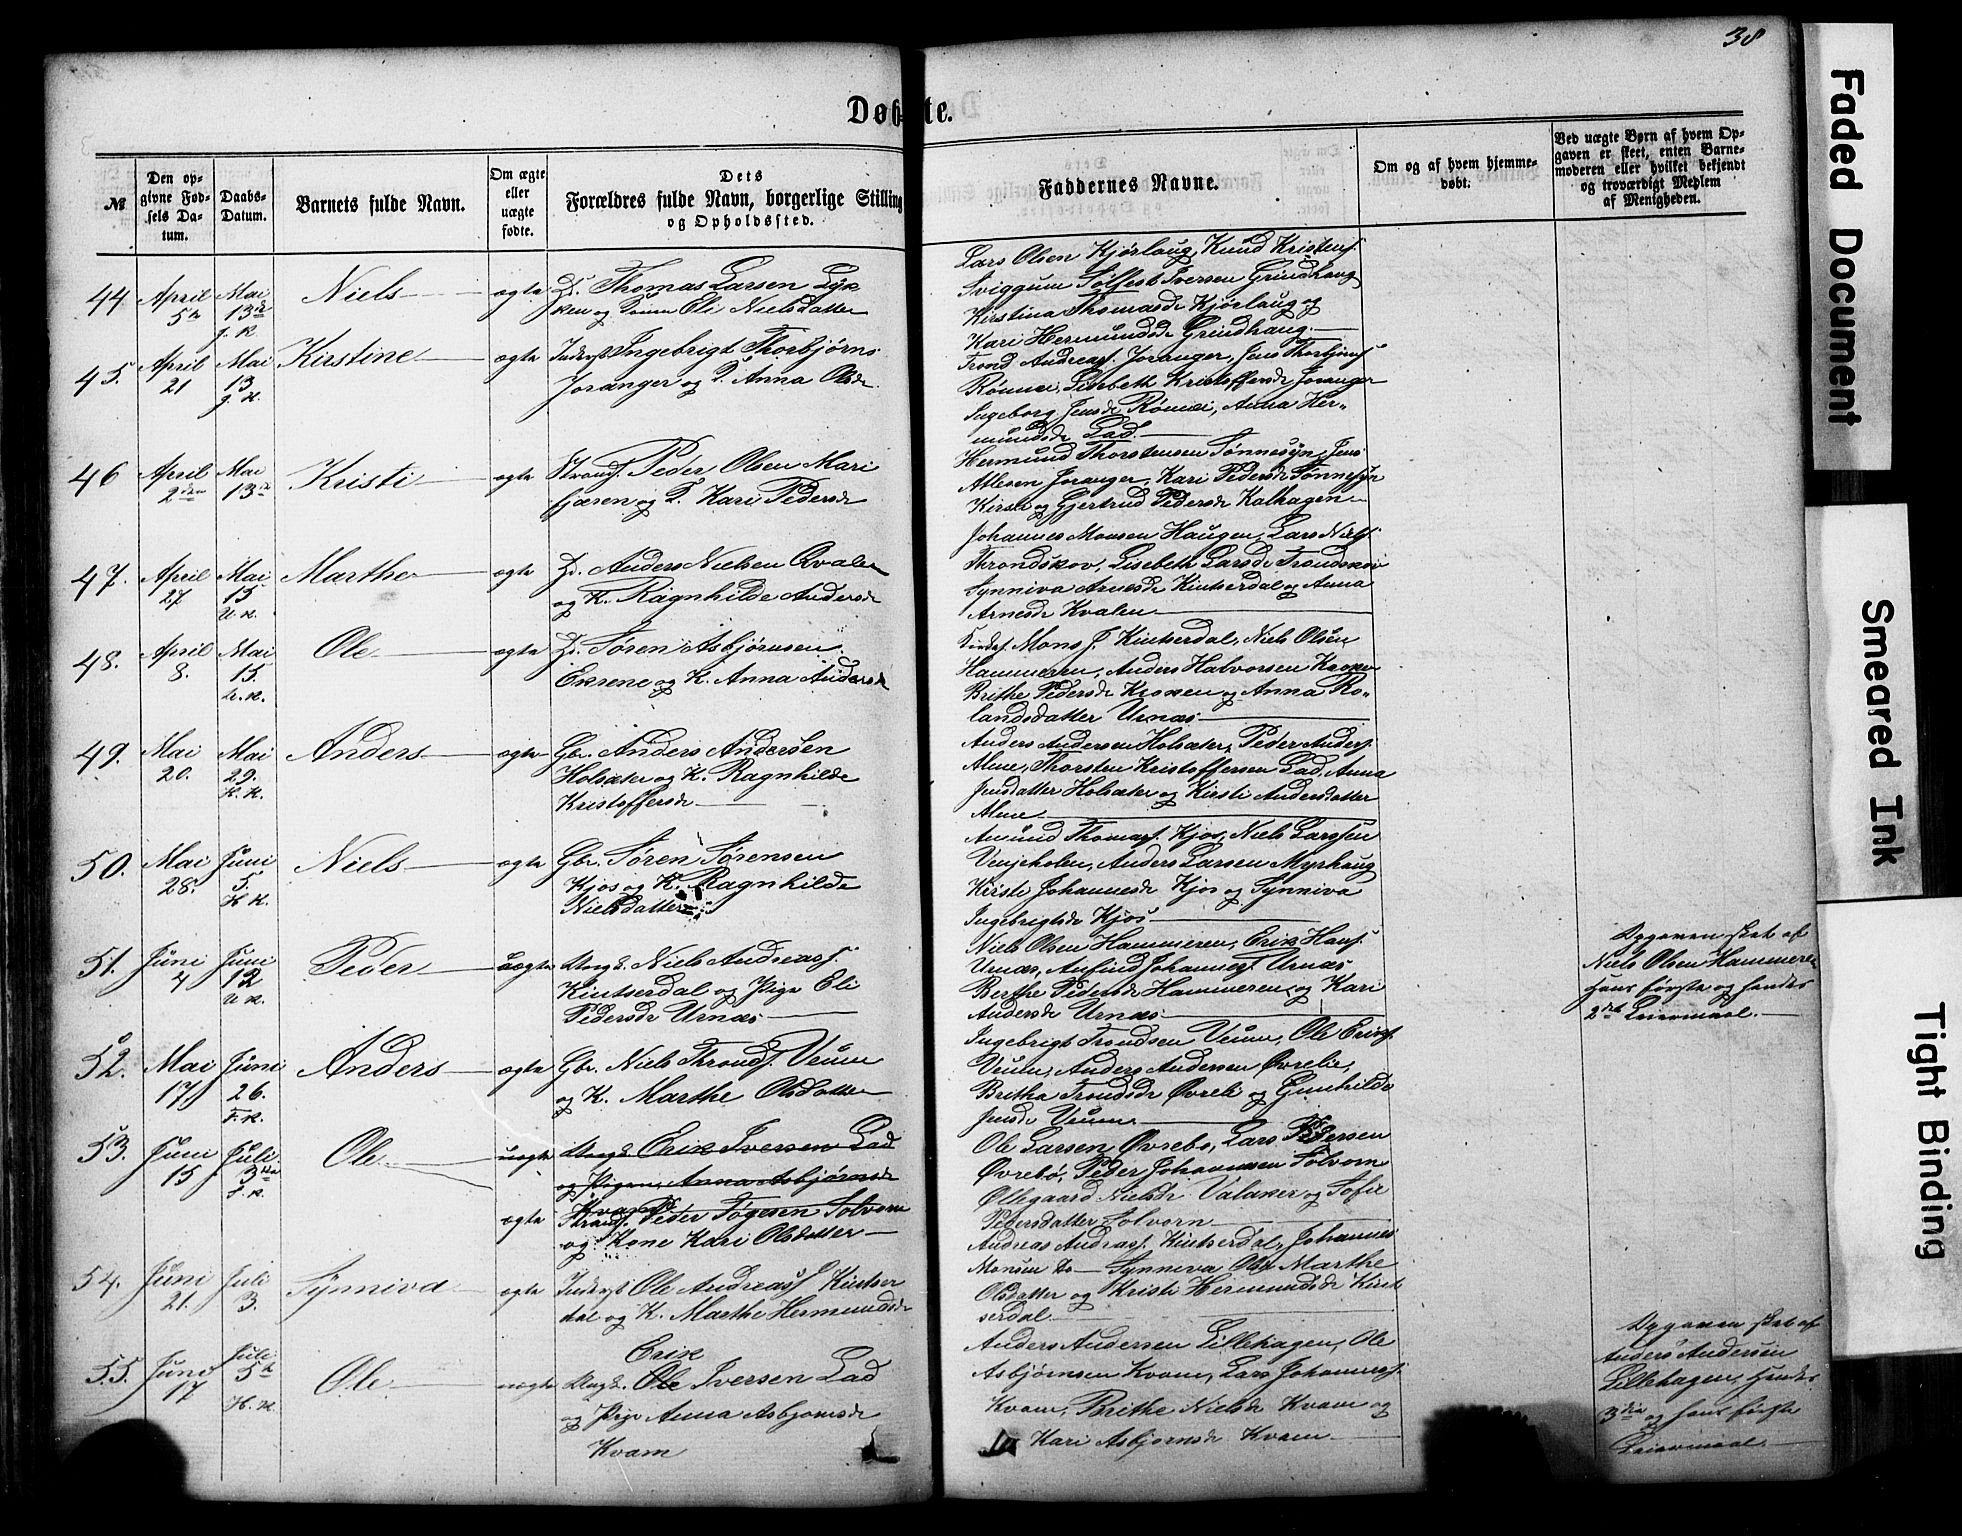 38
Døbte.
№
Den opgivne Fødsels Datum.
Daabs-Datum.
Barnets fulde Navn.
Om ægte eller uægte fødte.
Dets Forældres fulde Navn, borgerlige Stilling og Opholdssted.
Faddernes Navne.
Om og af hvem hjemmedøbt.
Ved uægte Børn af hvem Opgaven er skeet, enten Barnemoderen eller hvilket bekjendt og troværdigt Medlem af Menigheden.
44. April 5te Mai 13de J. K. Niels ægte Thomas Larsen
og Nielsdatter
Lars Olsen Kjørlaug, Knud Kristens.
Sviggum Solfest Iversen Grindhaug
Kirstina Thomasdr Kjørlaug og
Kari Hermundsdr Grindhaug.
45. April 21 Mai 13. J. K. Kirstine ægte Inderst Ingebrigt Thorbjørns.
Joranger og K. Anna Olsdr
Trond Andreass. Joranger, Jens Thorbjørns.
Rønnei, Lisebeth Kristoffersdr Joranger
Ingeborg Jensdr Rønnei, Anna Her-
mundsdr Lad.
46 April 2den Mai 13de Kristi ægte Strands. Peder Olsen Mari
fjæren og K. Kari Pedersdr
Hermund Thorstensen Sønnesyn, Jens
Atlesen Joranger, Kari Pedersdr Sønnesyn
Kirsti og Gjertrud Pedersdr Kalhagen
47. April 27 Mai 15 U. K. Marthe ægte Anders Nielsen Qvalen
og K. Ragnhilde Andersdr
Johannes Monsen Haugen, Lars Niels.
Throndskov, Lisebeth Larsdr Trondskov
Synniva Arnesdr Kintserdal og Anna
Arnesdr Kvalen
48. April 8. Mai 15. U. K. Ole ægte Søren Asbjørnsen
Eikrene og K. Anna Andersdr
Mons J. Kintserdal, Niels Olsen
Hammeren, Anders Halvorsen Kroken
Brithe Pedersdr Kroken og Anna Ro-
landsdatter Urnæs
49. Mai 20. Mai 29. H. K. Anders ægte Gbr. Anders Andersen
Holsæter og K. Ragnhilde
Kristoffersdr
Anders Andersen Holsæter, Peder Anders.
Alme, Thorsten Kristoffersen Lad, Anna
Jensdatter Holsæter og Kirsti Andersdatter
Alme
50. Mai 28. Juni 5. H. K. Niels ægte Gbr. Søren Sørensen
Kjos og K. Ragnhilde
Nielsdatter
Amund Thomass. Kjos, Niels Larssen
Venjeholen, Anders Larsen Myrhaug
Kirsti Johannesdr Kjos og Synniva
Ingebrigtsdr Kjos
51. Juni 4 Juni 12 U. K. Peder uægte Ungk. Niels Andreass.
Kintserdal og Pige Eli
Pedersdr Urnæs
Niels Olsen Hammeren, Erik Hans.
Urnæs, Anfind Johannes. Urnæs
Berthe Pedersdr Hammeren og Kari
Andersdr Urnæs
Opgaven skeet af
Niels Olsen Hammeren
Hans første og hendes
2det Leiermaal.
52. Mai 17 Juni 26. F. K. Anders ægte Gbr. Niels Thronds. Veum
og K. Marthe Olsdatter
Ingebrigt Trondsen Veum, Ole Eriks.
Veum, Anders Andersen Øvrelie,
Britha Trondsdr Øvreli og Gunhilde
Jensdr Veum
53. Juni 15 Juli 3die Ole uægte Ungk. Erik Iversen Lad
og Pigen Anna Asbjørnsdr
Kvam
ægte Strands. Peder Tøgersen Solvorn
og Kone Kari Olsdatter
Ole Larsen Øvrebø, Lars Pedersen
Øvrebø, Peder Johannesen Solvorn
Ollegaard Nielsdr Valaker og Sofie
Pedersdatter Solvorn
54. Juni 21. Juli 3. Synniva ægte Inderst Ole Andreass Kintser
dal og K. Marthe Hermundsdr
Andreas Andreass. Kintserdal, Johannes
Monsen Do Synniva Olsdr Marthe
Olsdatter og Kristi Hermundsdr Kint
serdal
55. Juni 17 Juli 5te H. K. Ole uægte Ungk. Erik Ole Iversen Lad
og Pige Anna Asbjørnsdr
Kvam
Anders Andersen Lillehagen, Ole
Asbjørnsen Kvam, Lars Johanness.
Kvam, Brithe Nielsdr Kvam og
Kari Asbjørnsdr Kvam
Opgaven skeet af
Anders Andersen
Lillehagen, Hendes
3die og hans første
Leiermaal.
Faded Document
Smeared Ink
Tight Binding